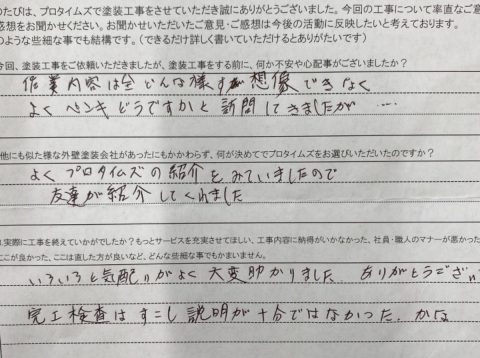 のたびは、プロタイムズで塗装工事をさせていただき誠にありがとうございます。今回の工事について率直なご意
感想をお聞かせください。お聞かせいただいたご意見・ご感想は今後の活動に反映したいと考えております。
のような些細な事でも結構です。(できるだけ詳しく書いていただけるとありがたいです)
今回、塗装工事をご依頼いただきましたが、塗装工事をする前に、何か不安や心配事がございましたか?
作業内容は全どんな様す想像できなく
よくペンキどうですかと訪問してきましたが ....
他にも似た様な外壁塗装会社があったにもかかわらず、何が決めてでプロタイムズをお選びいただいたのですか?
よくプロタイムズの紹介をみていましたので
友達が紹介してくれました
実際に工事を終えていかがでしたか?もっとサービスを充実させてほしい、工事内容に納得がいかなかった、社員・職人のマナーが悪かった
ここが良かった、ここは直した方が良いなど、どんな些細な事でもかまいません。
いろいろと気配りがよく 大変助かりました. ありがとうござい
完工検査はすこし説明が十分ではなかった. かな